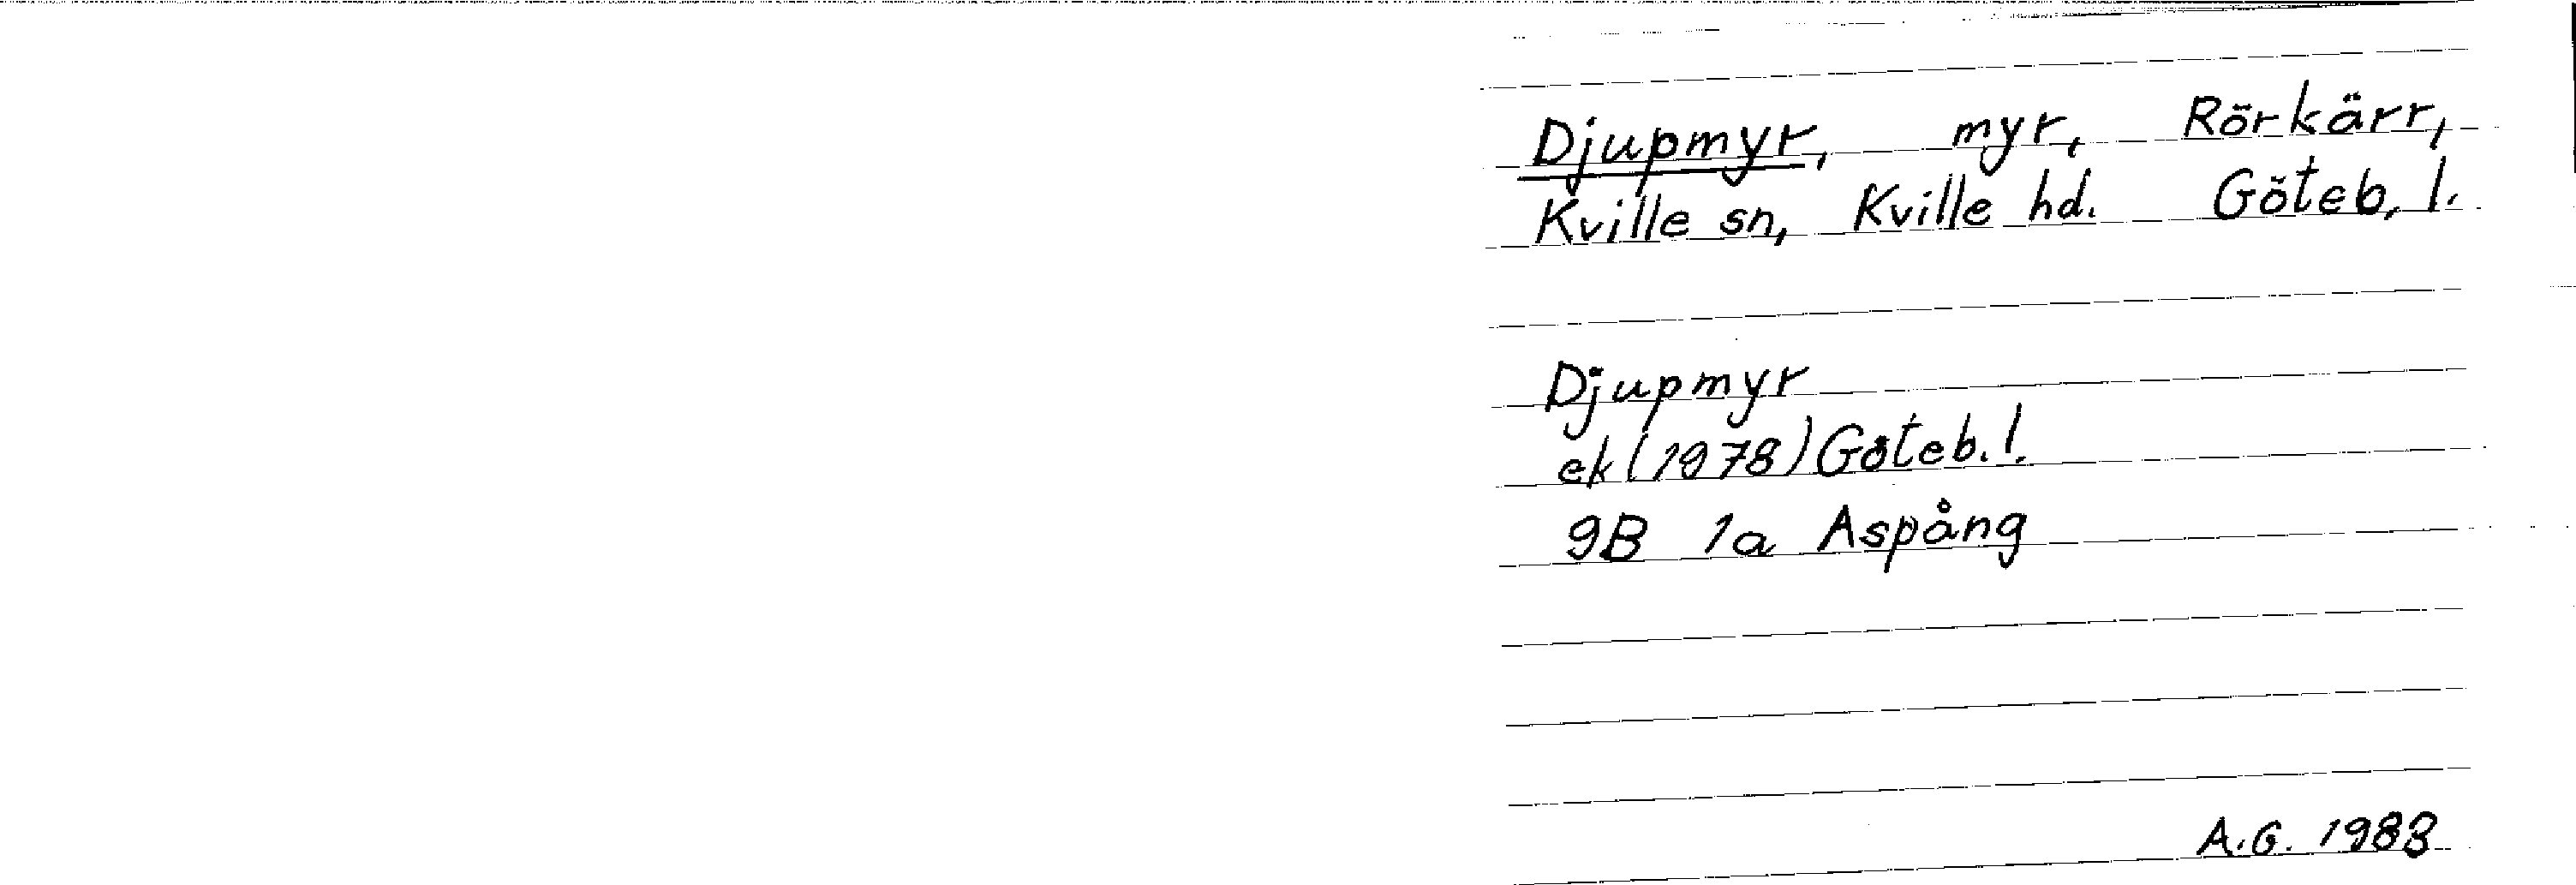 Djupmyr, myr, Rörkärr,
Kville sn, Kville hd. Göteb. l.
Djupmyr
ek (1978) Göteb. l.
9B 1a Aspång
A.G. 1988